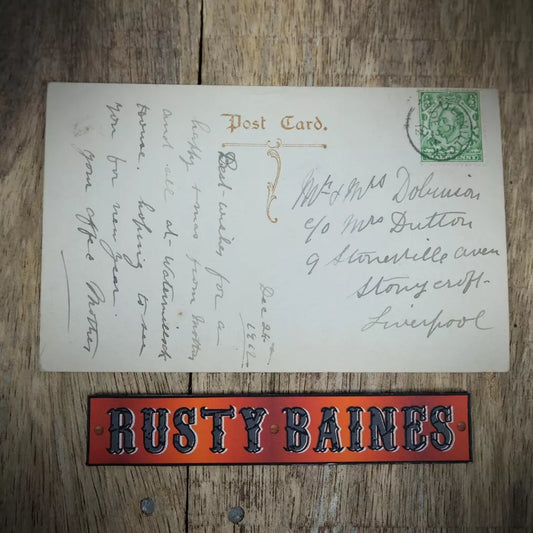 Post Card.
Dec 24th
1912
Best wishes for a
happy xmas from Mother
and all at Watermillock
house, hoping to see
you for new year.
your affec Mother
Mr & Mrs Dobinson
c/o Mrs Dutton
9 Stoneville aven
Stonycroft
Liverpool
RUSTY BAINES